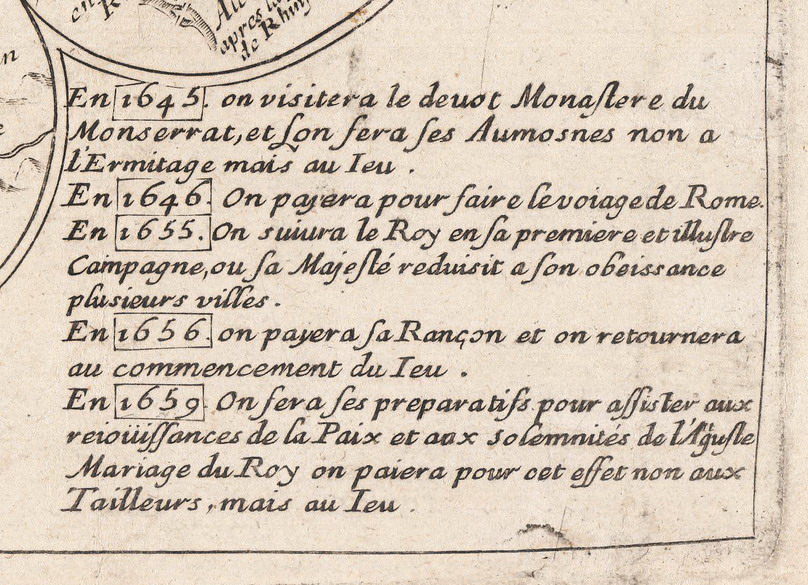 en
R
Al
apres la
de Rhin
n
e
En 1645. on visitera le deuot Monaſtere du
Monserrat, et Lon fera ſes Aumosnes non a
l'Ermitage mais au Ieu.
En 1646. On payera pour faire le voiage de Rome.
En 1655. On suiura le Roy en ſa premiere et illuſtre
Campagne, ou ſa Majeſté reduisit a ſon obeissance
plusieurs villes.
En 1656. on payera ſa Rançon et on retournera
au commencement du Ieu.
En 1659. On fera ſes preparatifs pour aſſister aux
reioüiſſances de la Paix et aux solemnités de l'Aguſte
Mariage du Roy on paiera pour cet effet non aux
Tailleurs, mais au Ieu.